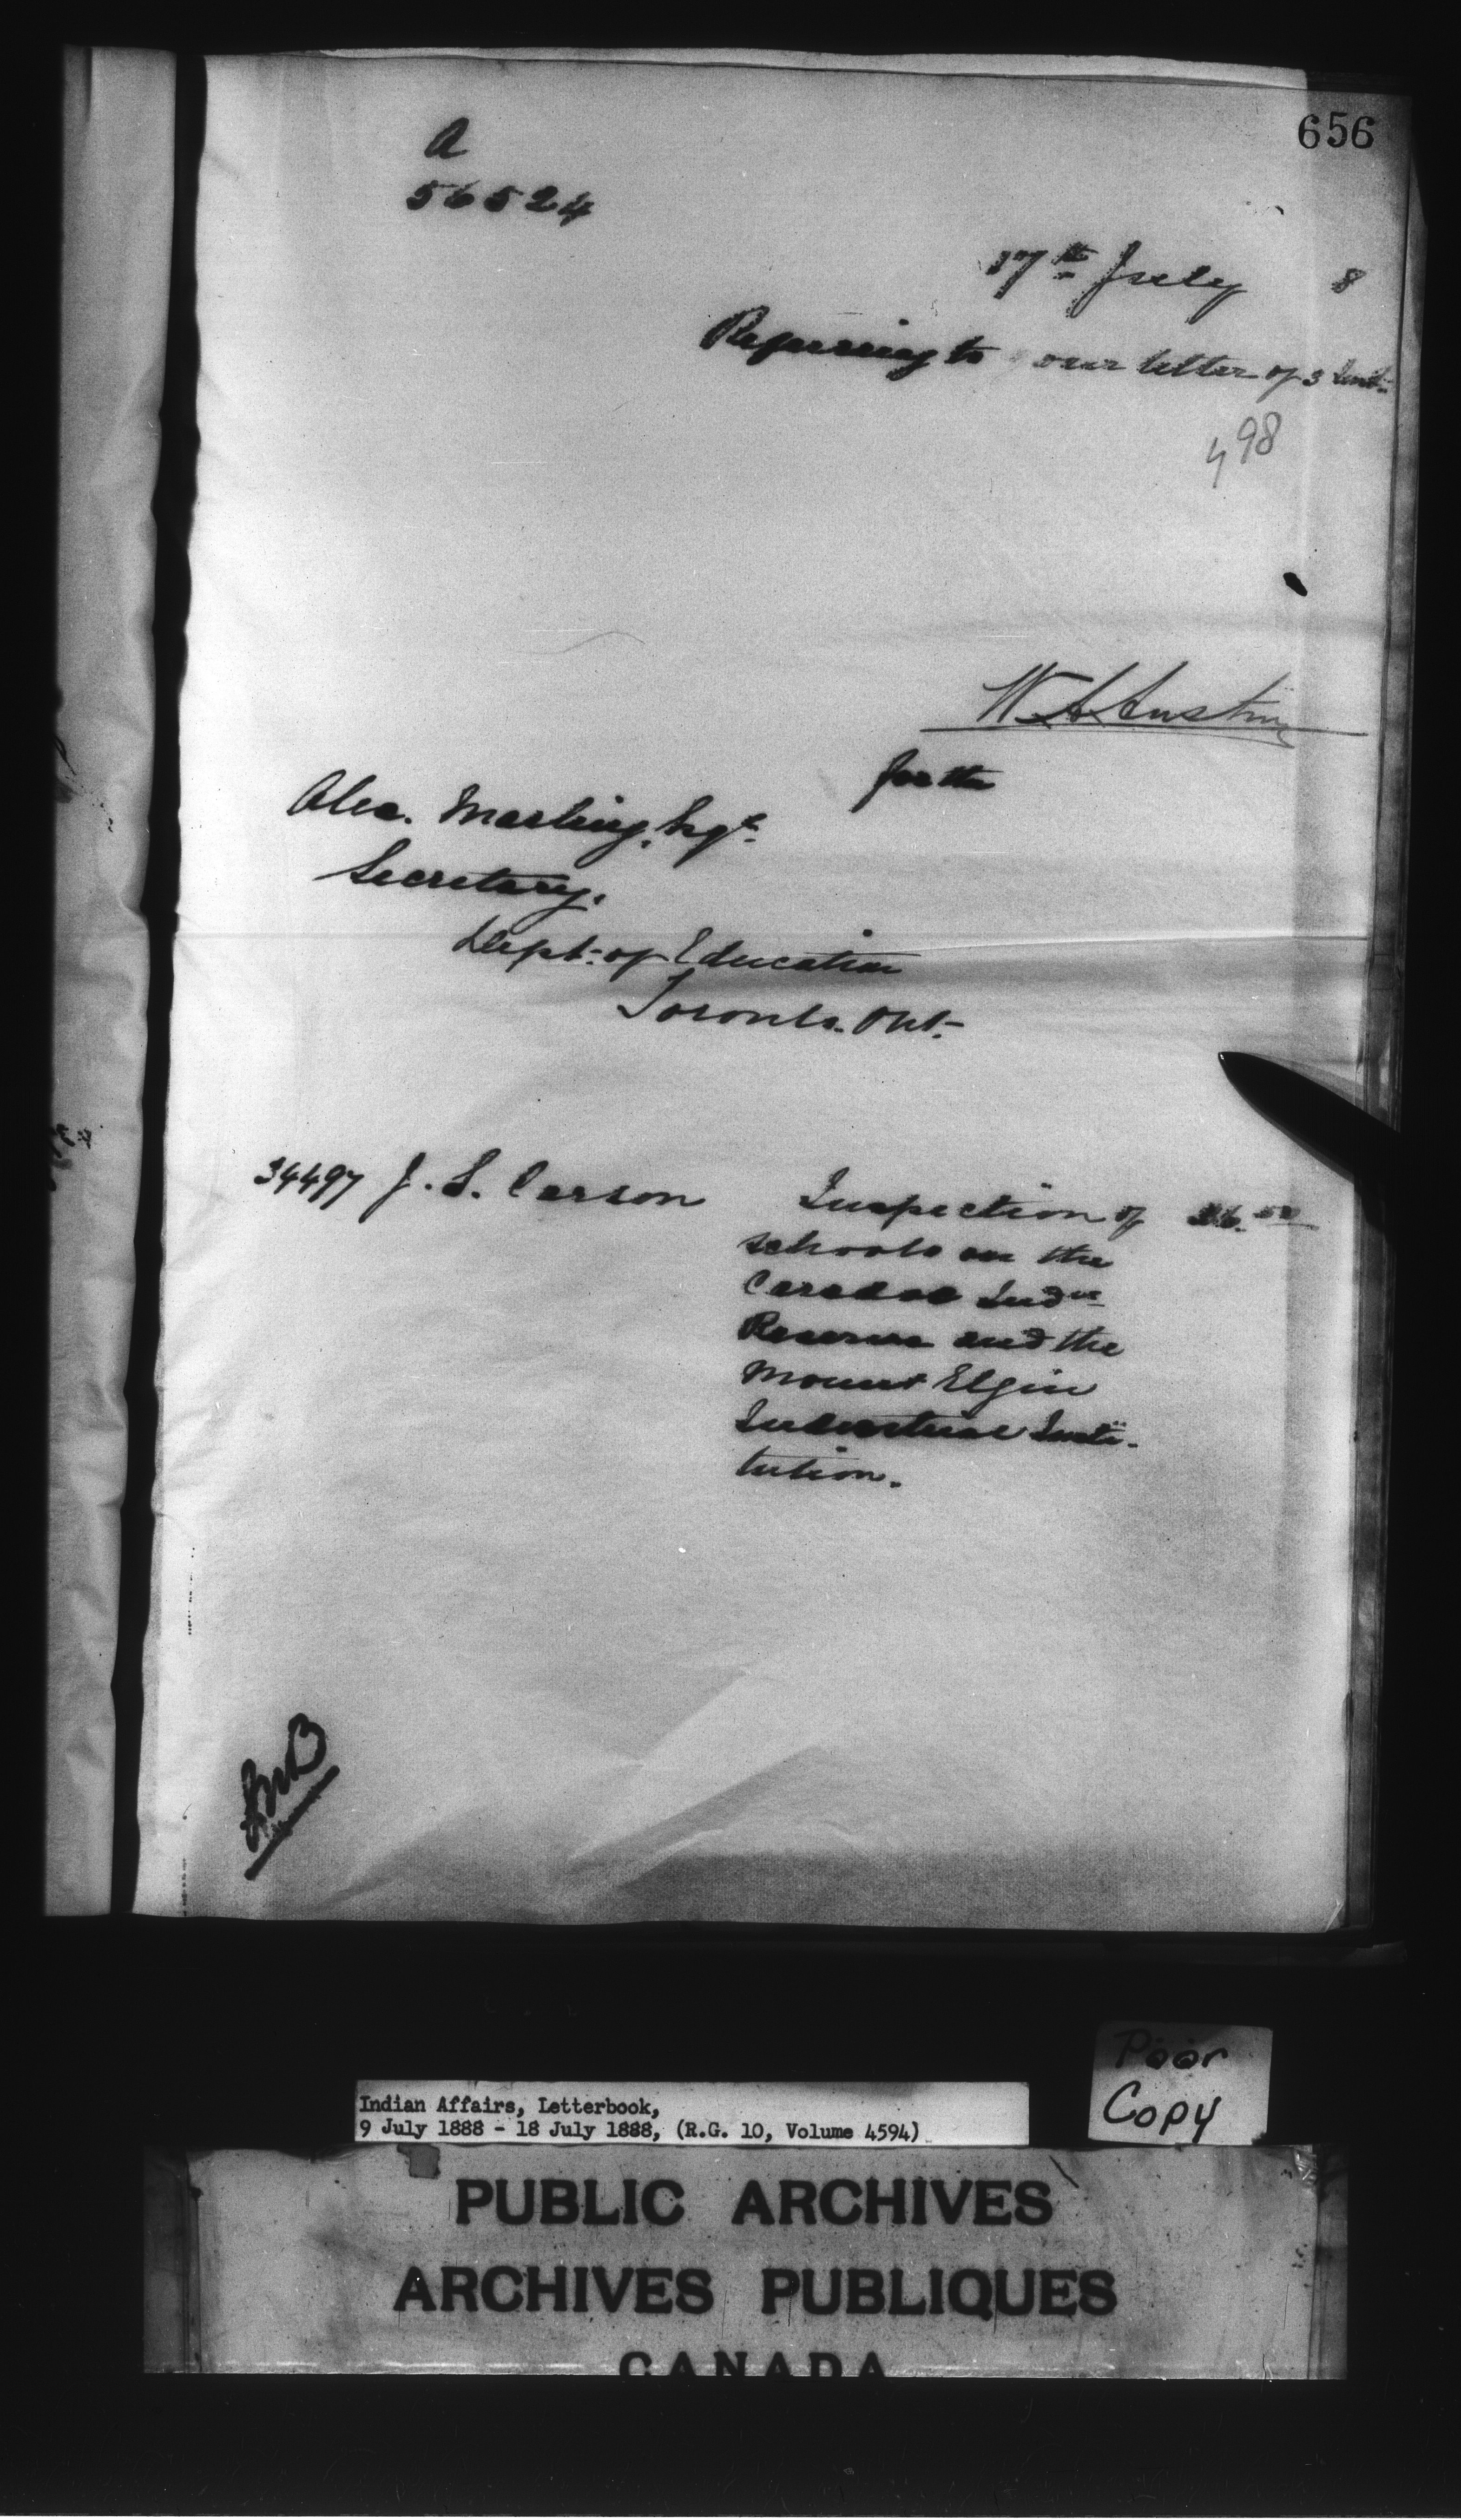 656
A
56524
17th July 8
Referring to our letter of 3 Inst.
498
W. A. Austin
for the
Alex. Marling, Esqr.
Secretary.
Dept. of Education
Toronto. Ont.
34497 J. S. Carson Inspection of
schools on the
Caradoc Indn
Reserve and the
Mount Elgin
Industrial Insti-
tution.
Poor
Copy
Indian Affairs, Letterbook,
9 July 1888 - 18 July 1888, (R.G. 10, Volume 4594)
PUBLIC ARCHIVES
ARCHIVES PUBLIQUES
CANADA